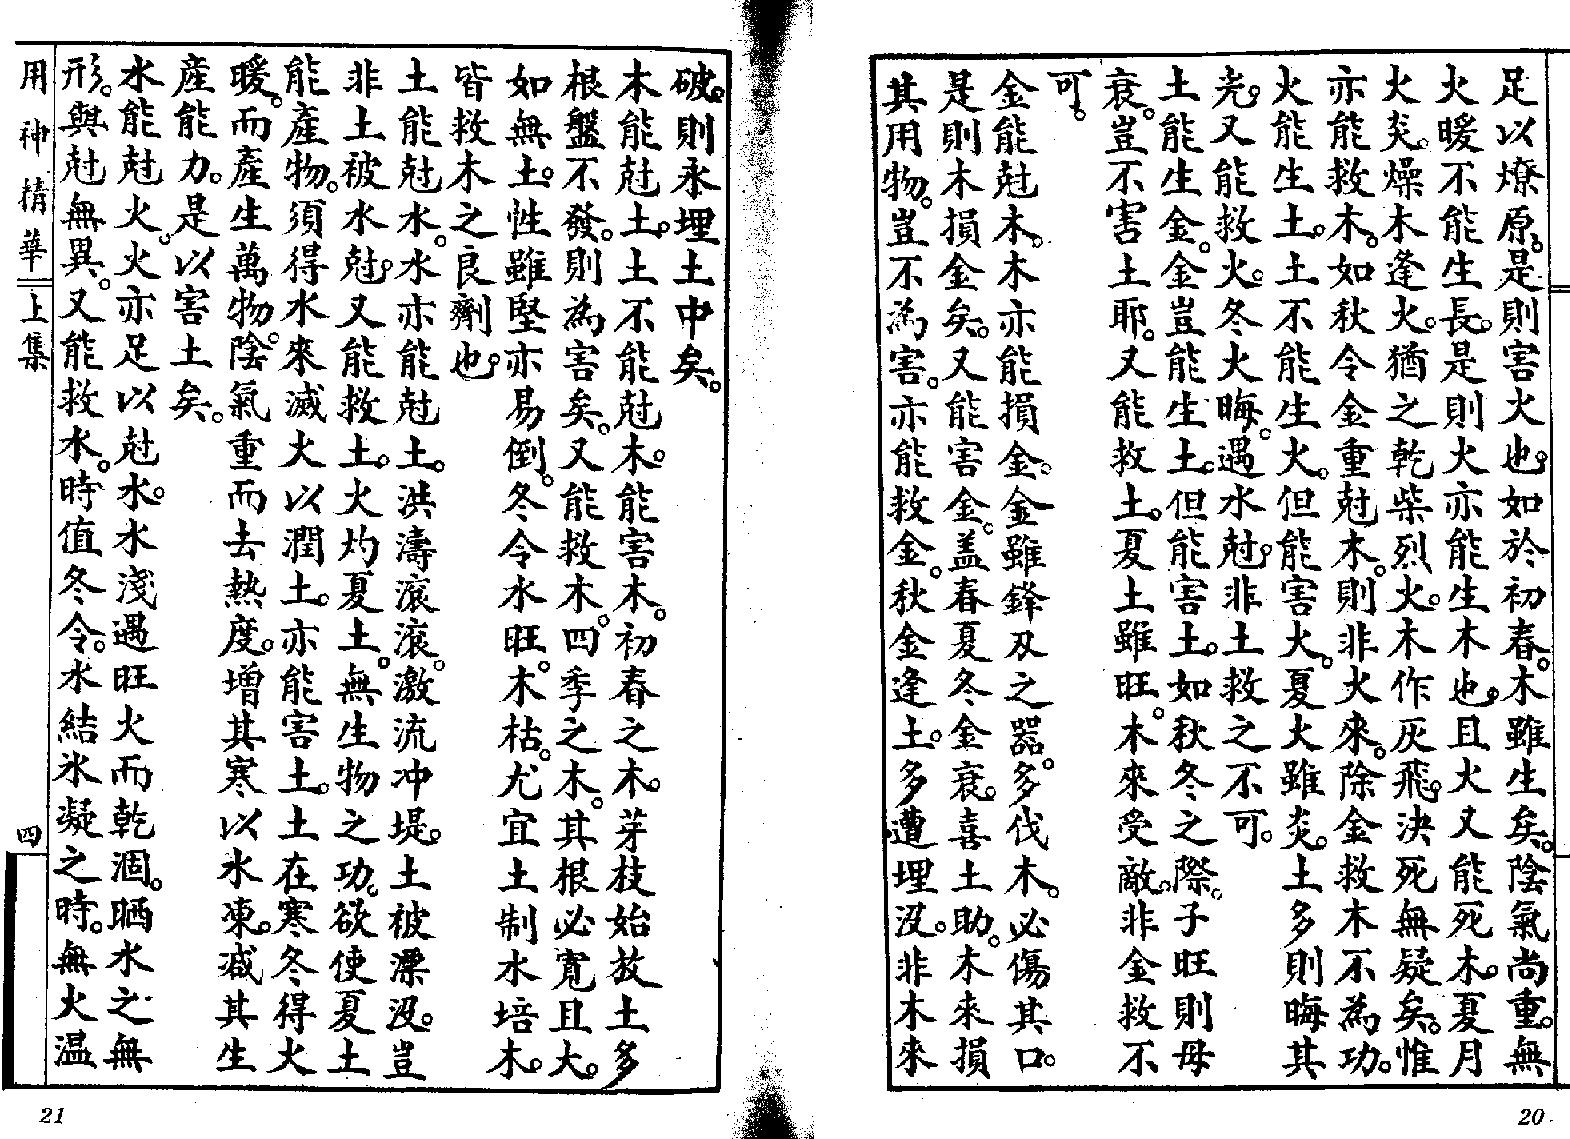 足以燎原。是則害火也。如於初春。木雖生矣。陰氣尚重。無
火暖不能生長。是則火亦能生木也。且火又能死木。夏月
火炎。燥木逢火。猶之乾柴烈火。木作灰飛。決死無疑矣。惟
亦能救木。如秋令金重尅木。則非火來。除金救木不為功。
火能生土。土不能生火。但能害火。夏火雖炎。土多則晦其
光。又能救火。冬火晦。遇水尅。非土救之不可。
土能生金。金豈能生土。但能害土。如秋冬之際。子旺則母
衰。豈不害土耶。又能救土。夏土雖旺。木來受敵。非金救不
可。
金能尅木。木亦能損金。金雖鋒刄之器。多伐木。必傷其口。
是則木損金矣。又能害金。盖春夏冬金衰。喜土助。木來損
其用物。豈不為害。亦能救金。秋金逢土。多遭埋沒。非木來
破。則永埋土中矣。
木能尅土。土不能尅木。能害木。初春之木。芽枝始放土多
根盤不發。則為害矣。又能救木。四季之木。其根必寬且大。
如無土。性雖堅亦易倒。冬令水旺。木枯。尤宜土制水培木。
皆救木之良劑也。
土能尅水。水亦能尅土。洪濤滾滾。激流冲堤。土被漂沒。豈
非土被水尅。又能救土。火灼夏土。無生物之功。欲使夏土
能產物。須得水來滅火以潤土。亦能害土。土在寒冬得火
暖。而產生萬物。陰氣重而去熱度。增其寒以水凍。減其生
產能力。是以害土矣。
水能尅火。火亦足以尅水。水淺遇旺火而乾涸。晒水之無
形。與尅無異。又能救水。時值冬令。水結氷凝之時。無火溫
用神精華 上集
四
21
20